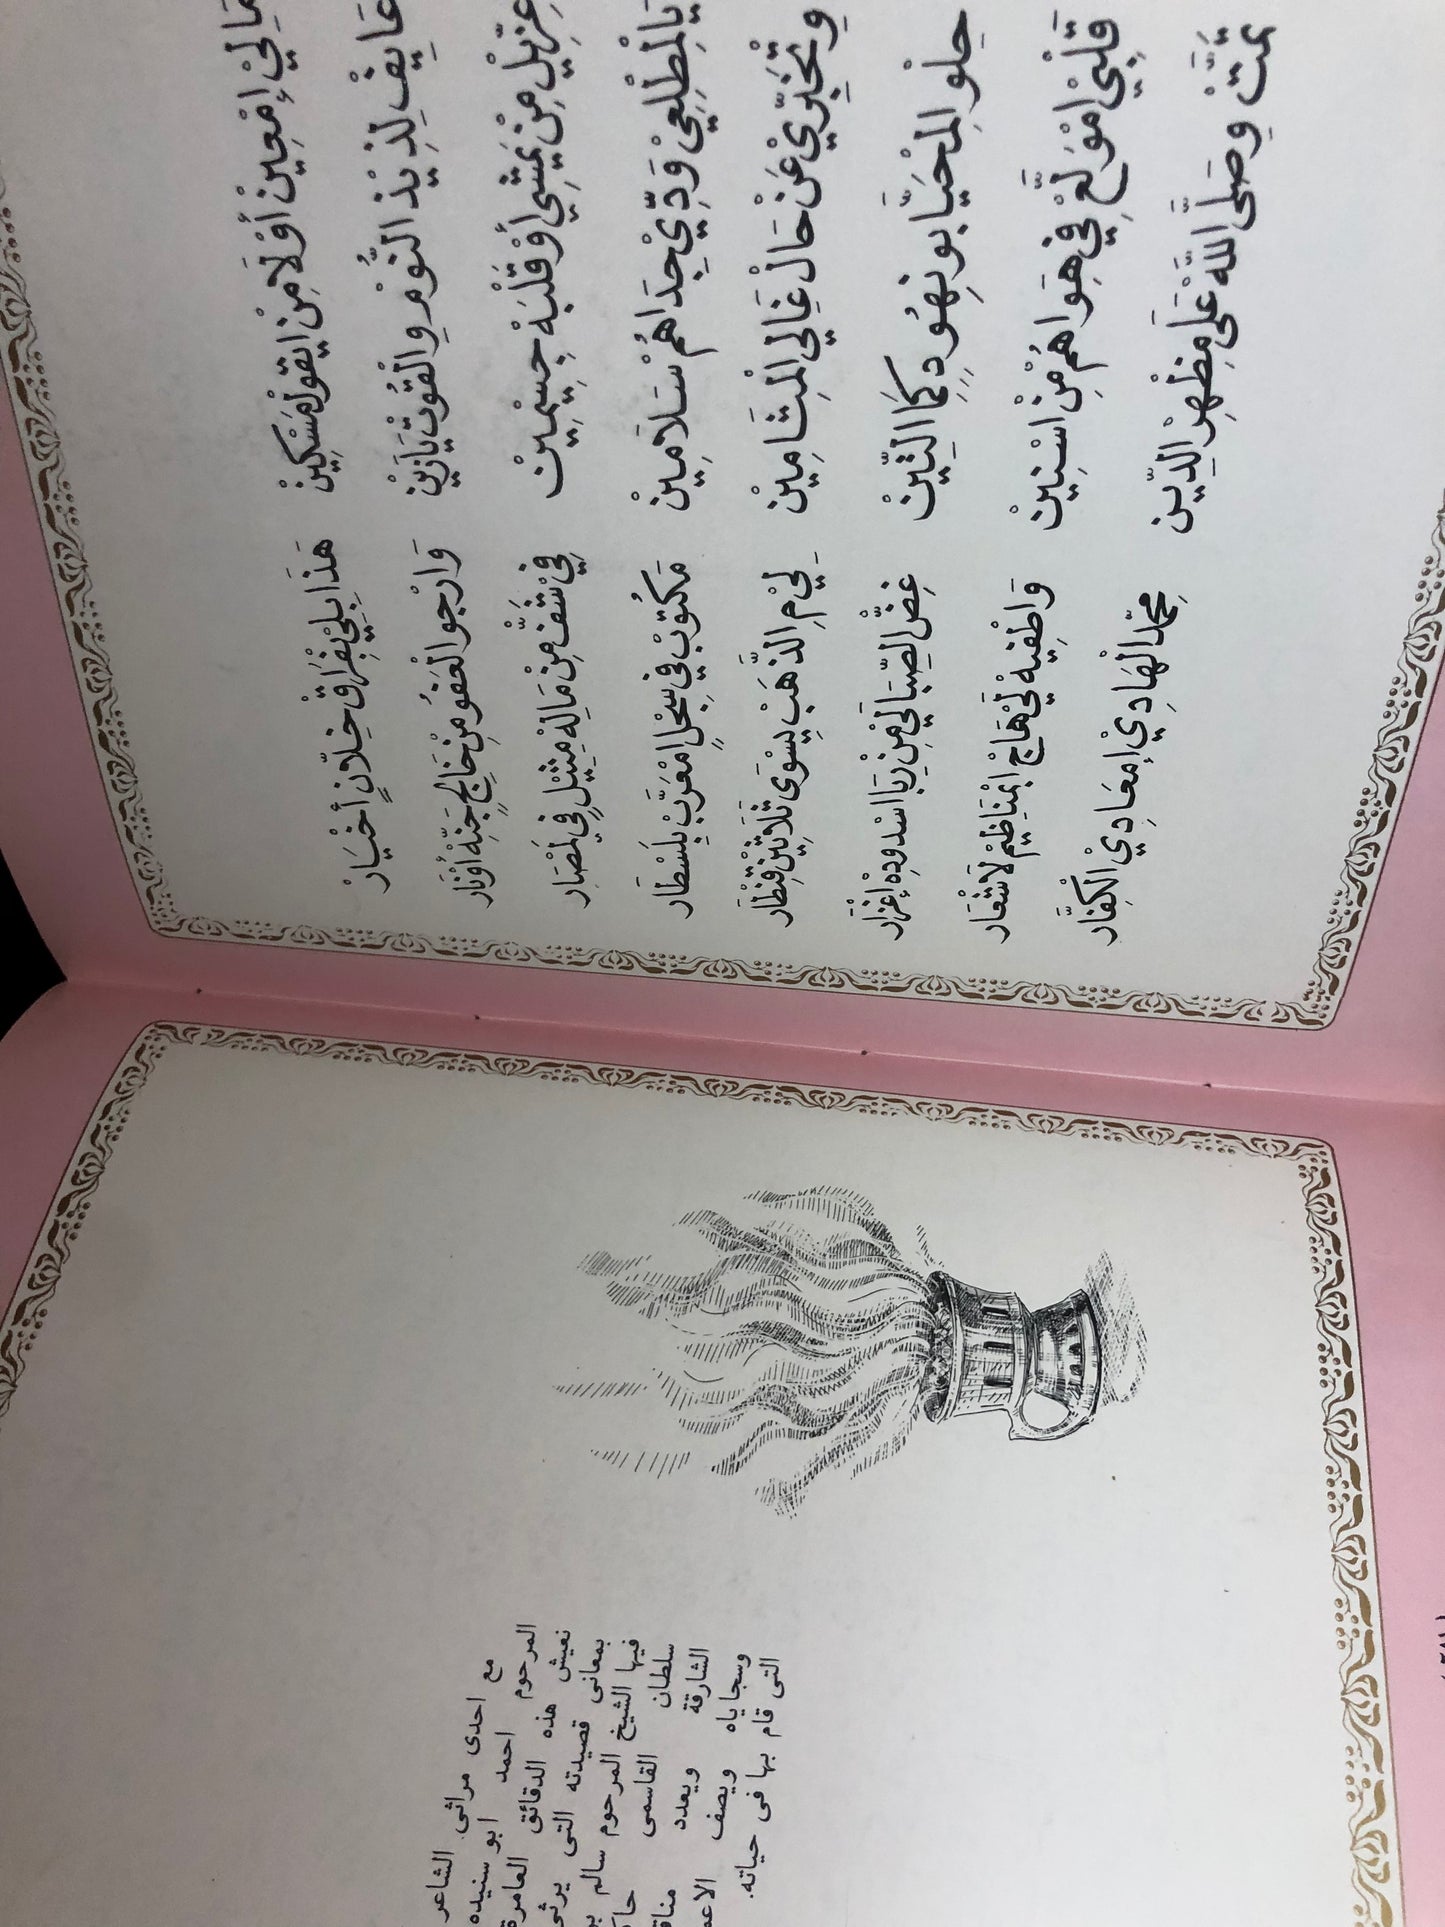 مَالِيْ إمْعِيْنْ أوْلَا مِنْ ايقولْ مَسْكِيْنْ هَذَا بِلِيْ بِفْرَاقْ خِلاّنٍ أخْيَارْ
عَايِفْ لِذِيْذ النَّوْمْ وِالْقُوْتْ يَا زَيْنْ وَارْجُوا الْعَفُو مِنْ خَالِجٍ جَنِّهْ اوْنَار
عِزّيْل مِنْ يَمْشِي أوْ قَلْبَهْ جِسِيْمِيْنْ فِي شَفّ مِنْ مَالِهْ مِثِيْلٍ فِي لَمْصَار
يَالْمِطْلِعِيْ وَدِّيْ جِدَاهُمْ سَلاَمِيْنْ مَكْتُوبْ فِي سْجِلٍ امْعَرَّبْ بِلَسْطَار
وِتْخَبِّرِيْ عَنْ حَالْ غَالِي الْمِثَامِيْنْ لِيْ مِ الذَّهَبْ يِسْوَى ثَلاَثِيْن قِنْطَار
حِلْو المِحَيَّا بو نهُودٍ كِمَا التِّيْنْ غِضّ الصِّبَا لَيْ مِنْ رِبَا اسْدُودِهْ إغْزَار
قَلْبِيْ امْوَلَّعْ فِيْ هَوَاهُمْ مِنْ اسْنِيْنْ وَاطْفِيهْ لَيْ هَاجْ ابْمَنَاظِيْم لاَشْعَار
تَمَّتْ وِصَلَّى اللّه عَلَى مِظْهِرْ الدِّين مِحَمّد الْهَادِيْ إمْعَادِيْ الْكِفَّار
مع احدى مراثى الشاعر
المرحوم احمد ابو سنيده
نعيش هذه الدقائق العامرة
بمعانى قصيدته التى يرثى
فيها الشيخ المرحوم سالم
سلطان القاسمى
الشارقة ويعدد
وسجاياه ويصف
التى قام بها فى حياته.